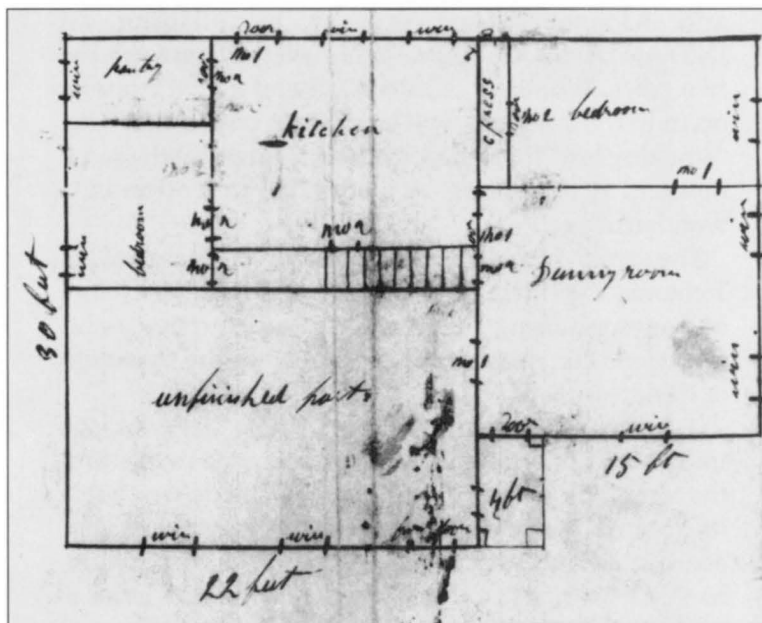 Door win win
pantry
win
no 1
no 2
kitchen
press
no 2 bedroom
win
no 1
bedroom
win
no 2
no 2
no 2
no 1
no 2
Dunny room
win
win
30 feet
unfinished part
no 1
Door win
15 ft
4 ft
win win
22 feet